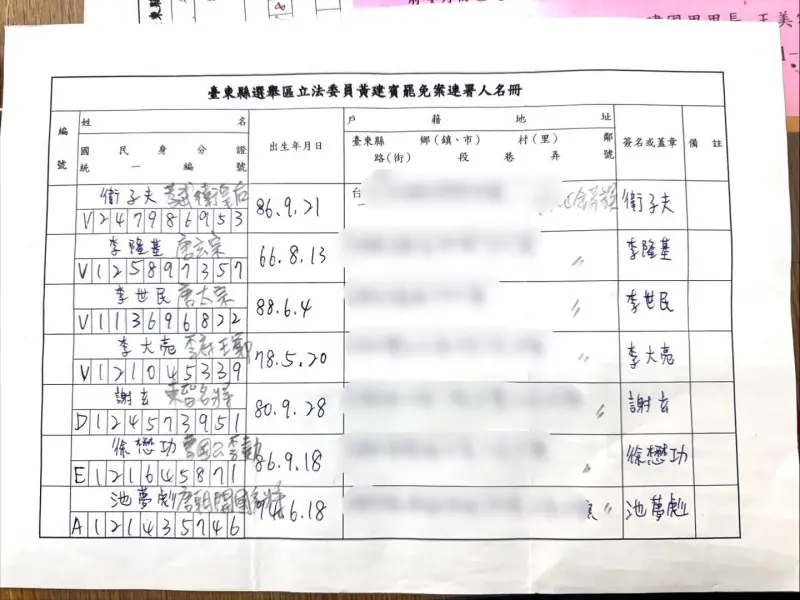 臺東縣選舉區立法委員黃建賓罷免案連署人名冊
編號 姓名 國民身分證統一編號 出生年月日 戶籍地址 臺東縣 鄉(鎮、市) 村(里) 鄰 路(街) 段 巷 弄 號 簽名或蓋章 備註
衛子夫 漢武衛皇后 86.9.21 台 衛子夫
V247986953
李隆基 唐玄宗 66.8.13 〃 李隆基
V125897357
李世民 唐太宗 88.6.4 〃 李世民
V113696822
李大亮 78.5.20 〃 李大亮
V121045339
謝玄 東晉名將 80.9.28 〃 謝玄
D124573951
徐懋功 曹國公李勣 86.9.18 〃 徐懋功
E121645871
池夢彪 唐朝開國名將 74.6.18 〃 池夢彪
A121435746